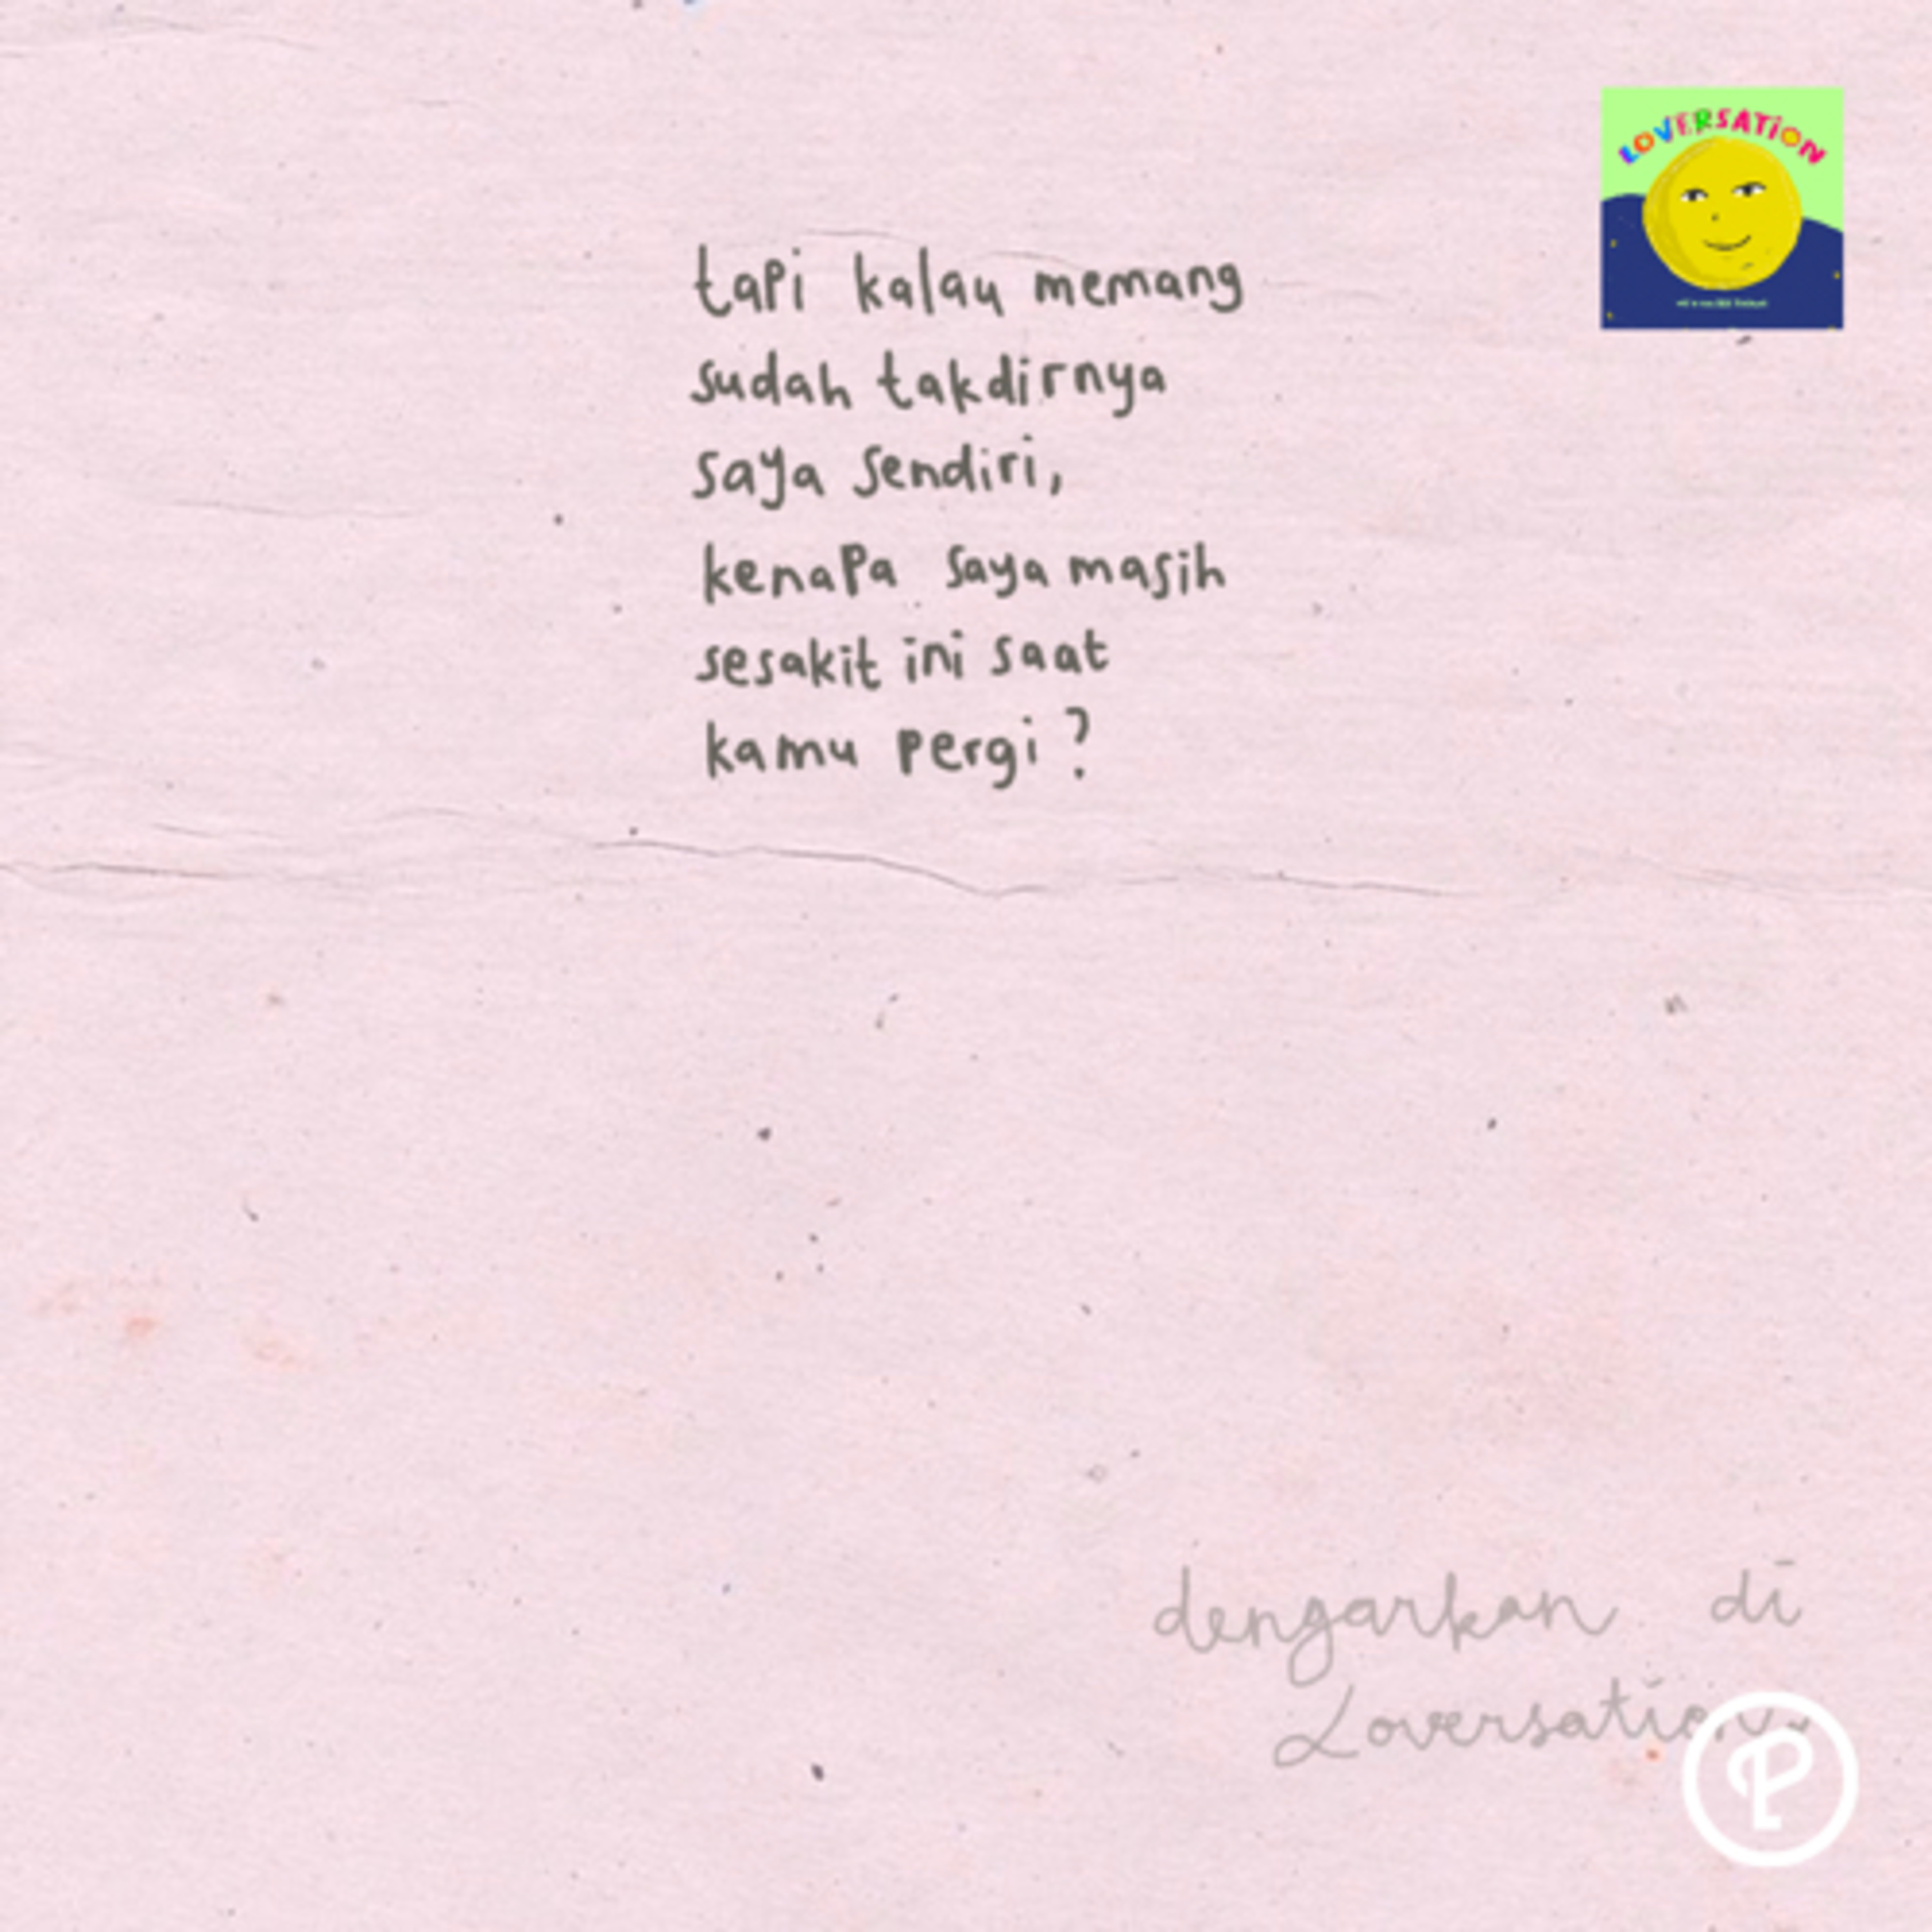 LOVERSATiON
tapi kalau memang
sudah takdirnya
saya sendiri,
kenapa saya masih
sesakit ini saat
kamu pergi?
dengarkan di
Loversation
P